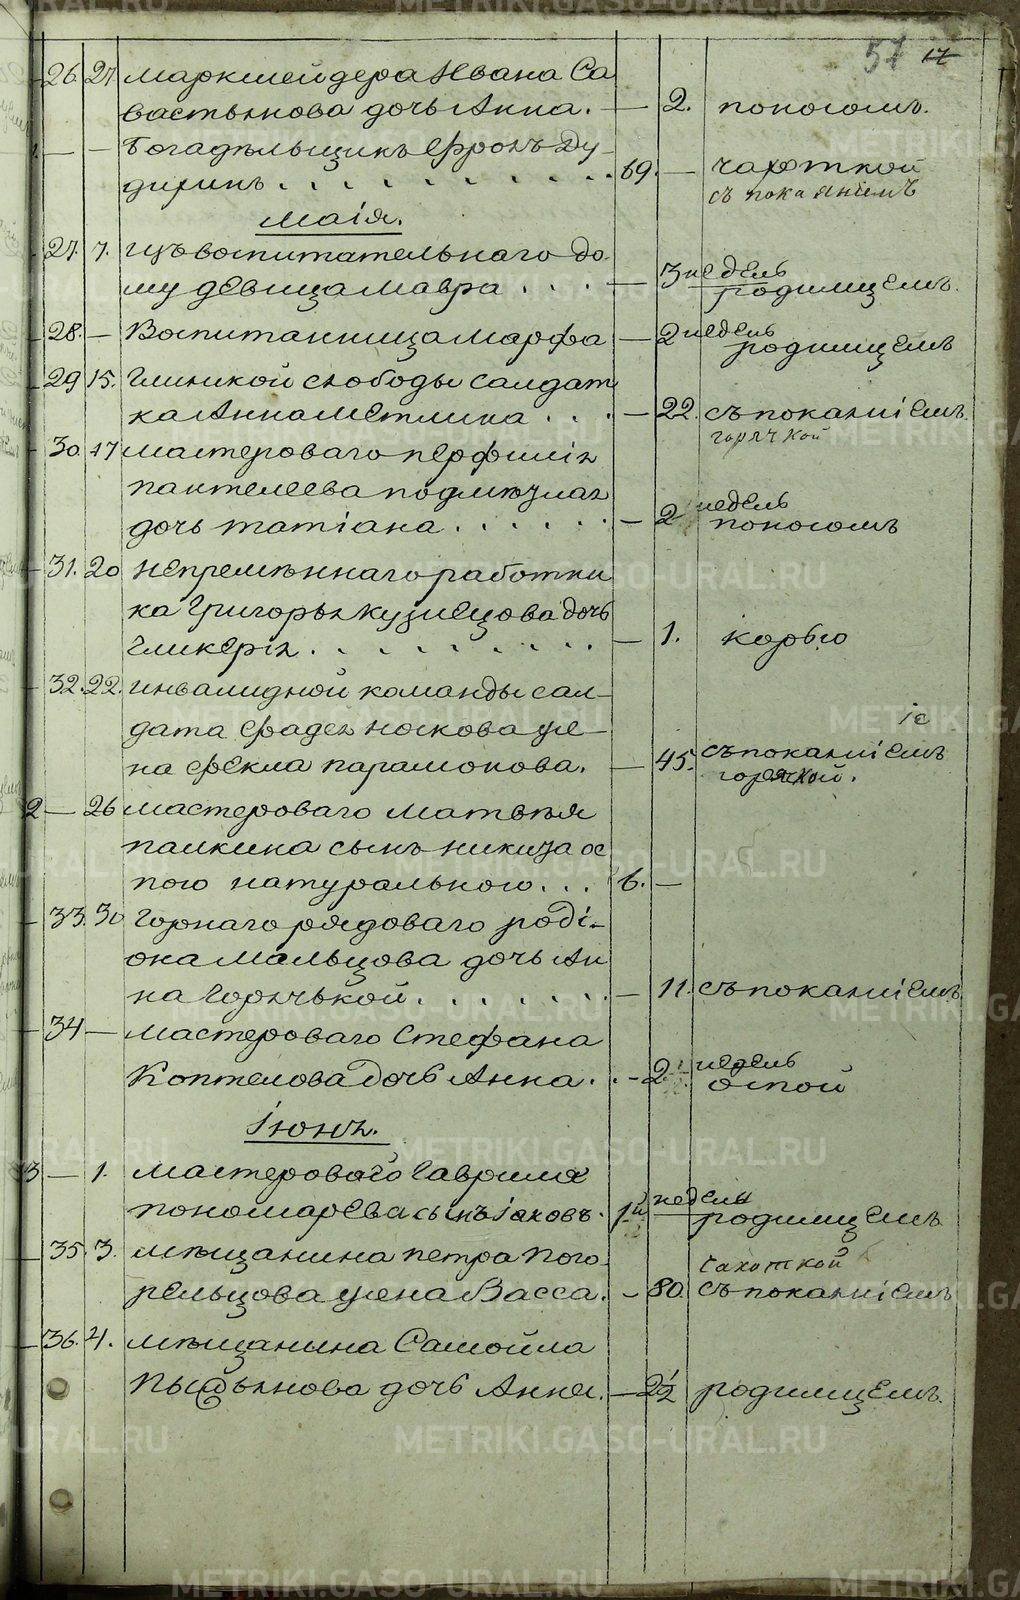 57 17
26. 27. маркшейдера Ивана Са
вастьянова дочь Анна. — 2. поносомъ.
— — Богадѣльщикъ Ефромъ Ду
диринъ . . . . . . . . . . 69. — чахоткой
съ покаяніемъ
Маія.
27. 7. изъ воспитательнаго до
му девица Мавра . . . . — 3 недель родимцемъ.
28. — Воспитанница марфа — 2 недель родимцемъ
29 15. Глинкой слободы салдат
ка Анна метлина . . . — 22. съ покаяніемъ
горячкой
30. 17 мастероваго перфилія
пантелеева подмѣзная
дочь татіана . . . . . . — 2 недель поносомъ
31. 20 непремѣннаго работни
ка Григорья кузнецова дочь
Гликерія . . . . . . . . . — 1. корью
32. 22. инвалидной команды сал-
дата Фадея носкова же-
на фекла парамонова. — 45. съ покаяніемъ
горячкой.
2 — 26 мастероваго матвѣя
палкина сынъ никита ос
пою натуральною . . . 6. —
33. 30 Горнаго рядоваго родi-
она Мальцова дочь Ан
на Горячькой . . . . . . . — 11. съ покаяніемъ
34 — мастероваго Стефана
Коптелова дочь Анна . . — 2 недель оспой
Іюнь.
3 — 1. мастероваго Гаврила
пономарева сынъ іаковъ. 1й недели родимцемъ
35. 3. мѣщанина петра Пого
рельцова жена Васса. — 80. чахоткой
съ покаяніемъ
36. 4. мѣщанина Самойла
дочь Анна. — 2 1/2 родимцемъ.
METRIKI.GASO-URAL.RU